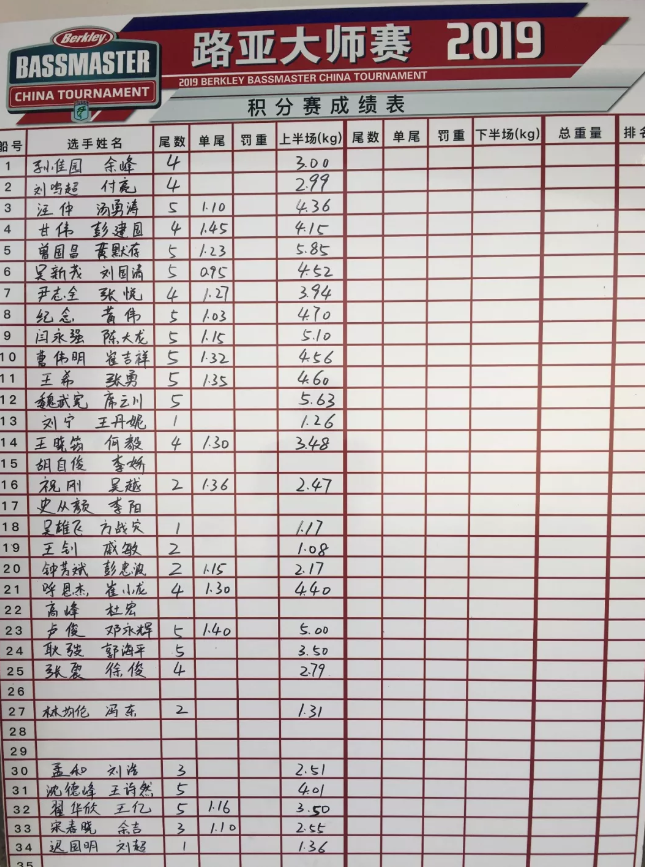 Berkley
BASSMASTER
CHINA TOURNAMENT
路亚大师赛 2019
2019 BERKLEY BASSMASTER CHINA TOURNAMENT
积分赛成绩表
船号 选手姓名 尾数 单尾 罚重 上半场(kg) 尾数 单尾 罚重 下半场(kg) 总重量 排名
1 孙佳园 余峰 4 3.00
2 刘鸣超 付亮 4 2.99
3 汪仲 汤勇涛 5 1.10 4.36
4 甘伟 彭建国 4 1.45 4.15
5 曾国昌 黄默存 5 1.23 5.85
6 吴新茂 刘国涛 5 0.95 4.52
7 尹志全 张悦 4 1.27 3.94
8 纪念 黄伟 5 1.03 4.70
9 闫永强 陈大龙 5 1.15 5.10
10 曹伟明 崔吉祥 5 1.32 4.56
11 王希 张勇 5 1.35 4.60
12 魏武宪 席云川 5 5.63
13 刘宁 王丹妮 1 1.26
14 王晓筠 何毅 4 1.30 3.48
15 胡自俊 李娇
16 祝刚 吴越 2 1.36 2.47
17 史从颜 李阳
18 吴雄飞 方战 1 1.17
19 王钊 戚敏 2 1.08
20 钟芳斌 彭忠波 2 1.15 2.17
21 恩杰 崔小龙 4 1.30 4.40
22 高峰 杜宏
23 卢俊 邓永辉 5 1.40 5.00
24 耿 郭海平 5 3.50
25 张 徐俊 4 2.79
26
27 林均伦 冯东 2 1.31
28
29
30 孟和 刘浩 3 2.51
31 沈德峰 王许然 5 4.01
32 翟华欣 王亿 5 1.16 3.50
33 宋春晓 余吉 3 1.10 2.55
34 迟国明 刘超 1 1.36
35